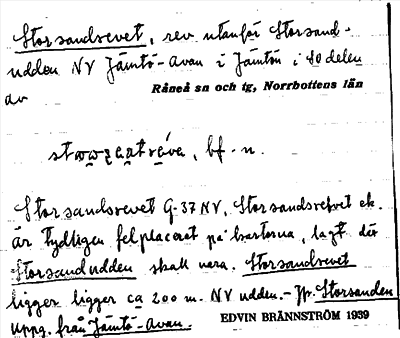 Storsandsrevet, rev utanför Storsand-
udden NV Jämtö-Avan i Jämtön i SO delen
Råneå sn och tg, Norrbottens län
av
bf. n.
Storsandsrevet G-37 NV, Storsandsrevet ek.
är tydligen felplacerat på kartorna, lagt där
Storsandudden skall vara. Storsandsrevet
ligger ligger ca 200 m. NV udden. - Jfr. Storsanden
Uppg. från Jämtö-Avan.
EDVIN BRÄNNSTRÖM 1939